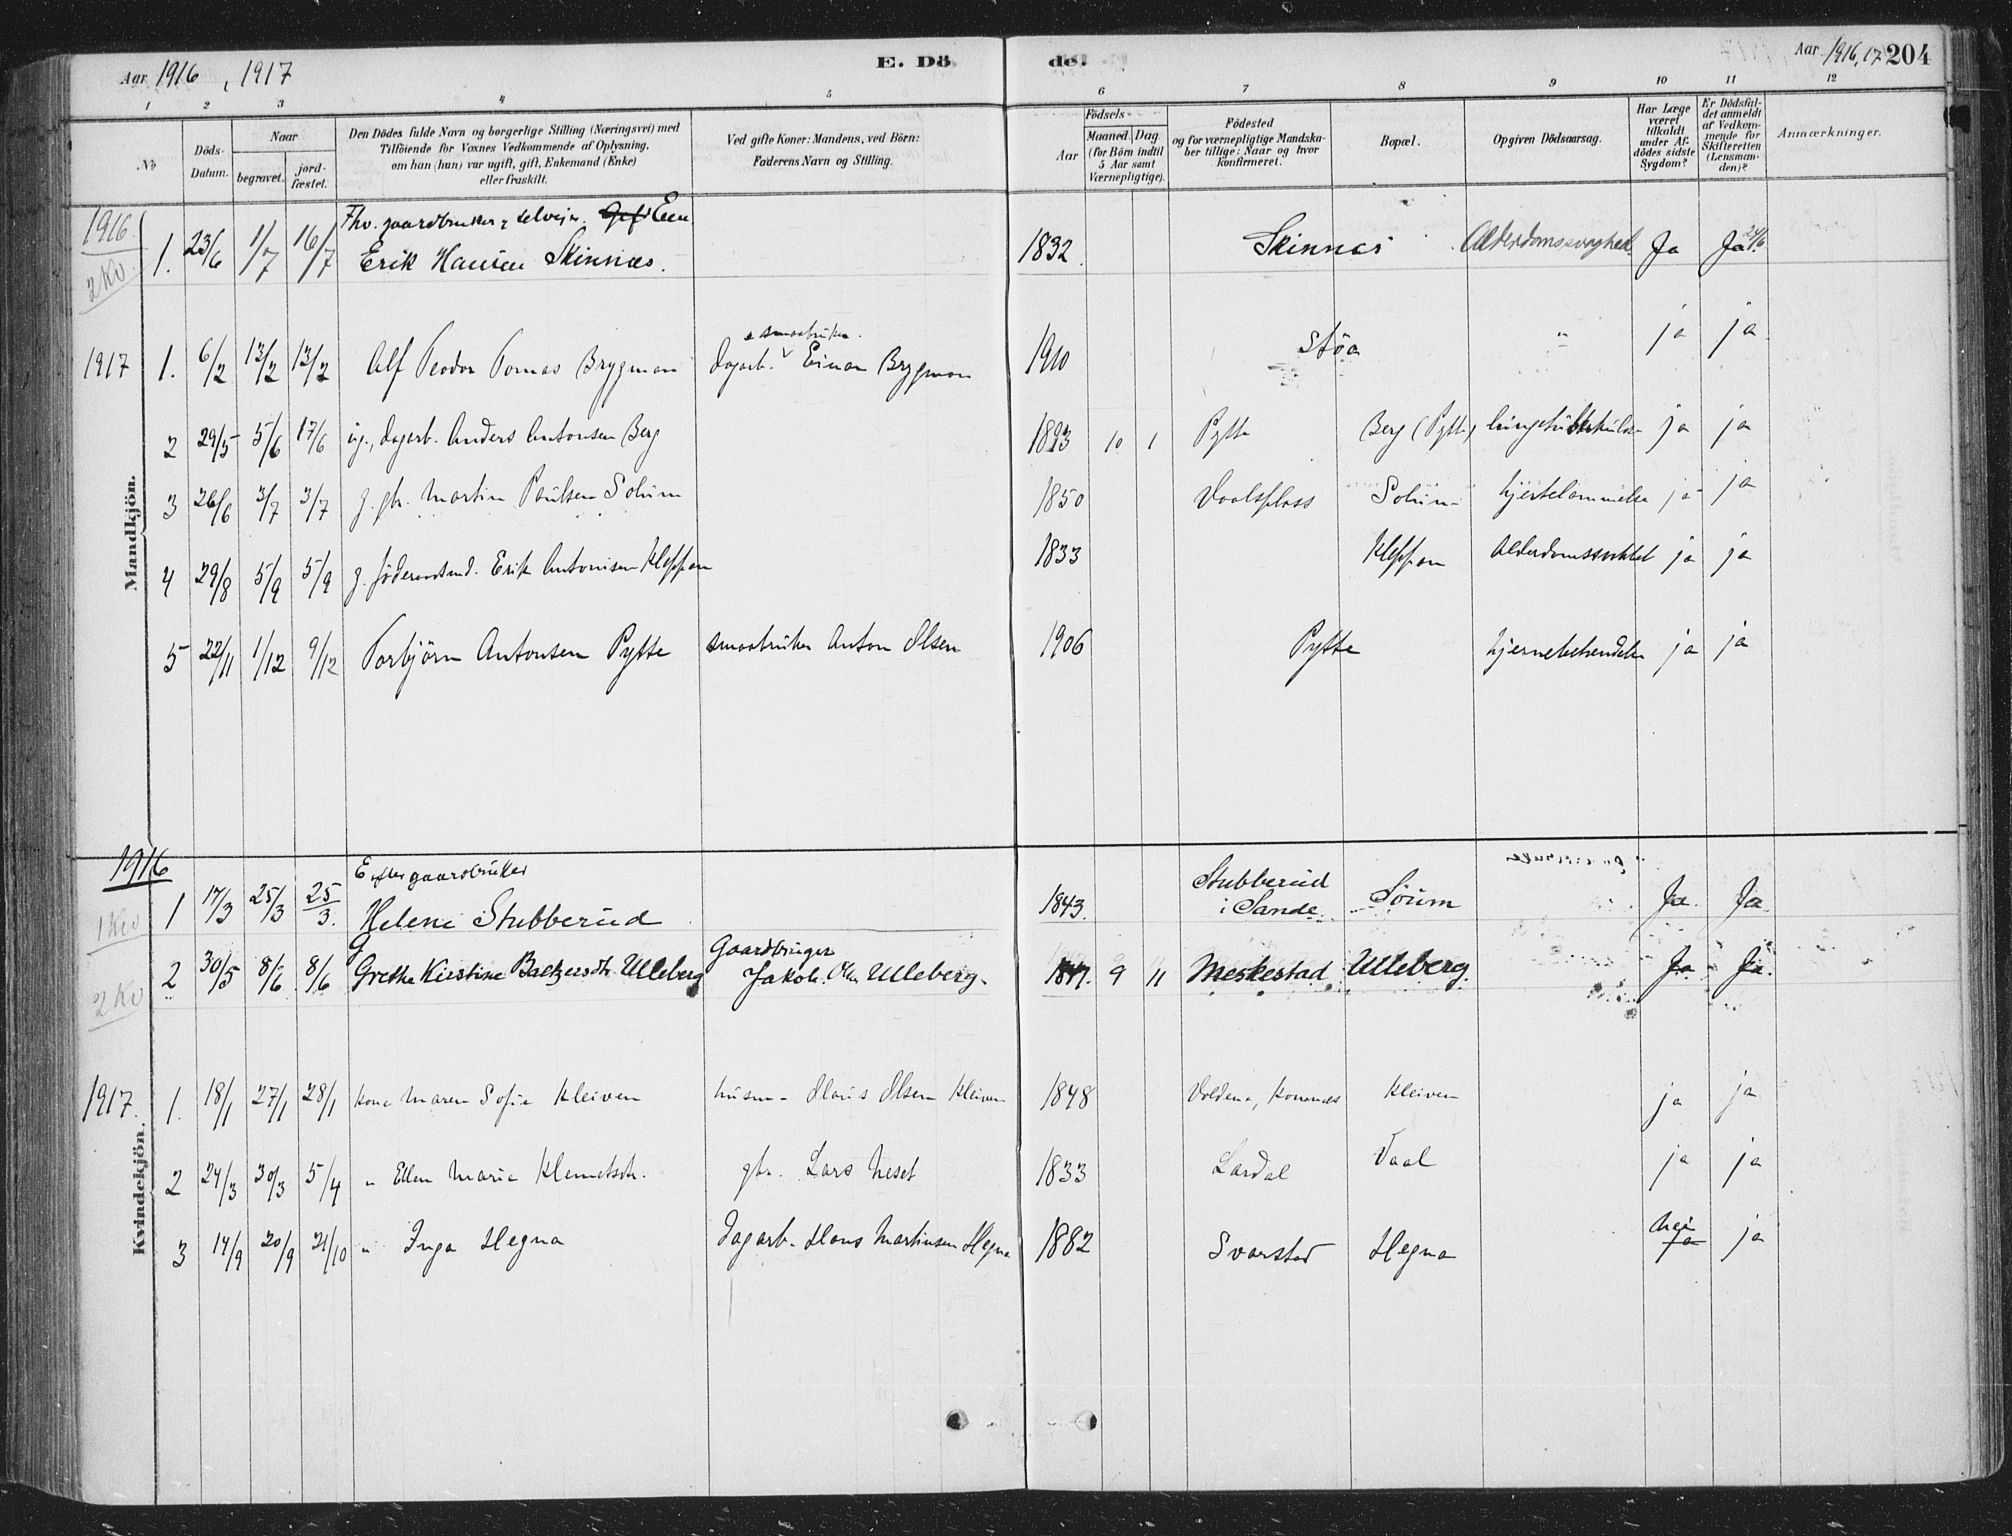 Aar 1916, 1917
E. Dö
de.
Aar 1916, 17 204
1 2 3 4 5 6 7 8 9 10 11 12
No
Döds-Datum.
Naar
begravet.
jord-fæstet.
Den Dödes fulde Navn og borgerlige Stilling (Næringsvei) med
Tilföiende for Voxnes Vedkommende af Oplysning,
om han (hun) var ugift, gift, Enkemand (Enke)
eller fraskilt.
Ved gifte Koner: Mandens, ved Börn:
Faderens Navn og Stilling.
Födsels-
Aar
Maaned. Dag.
(for Börn indtil
5 Aar samt
Værnepligtige).
Födested
og for værnepligtige Mandska-
ber tillige: Naar og hvor
konfirmeret.
Bopæl.
Opgiven Dödsaarsag.
Har Læge
været
tilkaldt
under Af-
dödes sidste
Sygdom?
Er Dödsfal-
det anmeldt
af Vedkom-
mende for
Skifteretten
(Lensman-
den)?
Anmærkninger.
Mandkjön.
1916
2 Kv.
Fhv. gaardbruker, selveier. Gift Enke
1. 23/6 1/7 16/7 Erik Hansen Skinnæs. 1832 Skinnæs Alderdomssvaghed. Ja Ja 24/6
smaabruker.
1917 1. 6/2 13/2 13/2 Alf Teodor Tomas Brygman Dagarb. Einar Brygman 1910 Støa " ja ja
2 29/5 5/6 17/6 ug., dagarb. Anders Antonsen Berg 1893 10 1 Pytte Berg (Pytte) ja ja
3 26/6 3/7 3/7 g. gbr. Martin Paulsen Solum 1850 Vaalsplass Solum hjertelammelse ja ja
4 29/8 5/9 5/9 g. föderaadsmd. Erik Antonisen Kleppan 1833 Kleppan Alderdomssvakhet ja ja
5 22/11 1/12 9/12 Torbjörn Antonsen Pytte smaabruker Anton Olsen 1906 Pytte hjernebetændelse ja ja
Kvindekjön.
1916
1 Kv
E. efter gaardbruker
1 17/3 25/3 25/3. Helene Stubberud 1843. Stubberud i Sande. Sörum Ja. Ja
2 Kv
G Gaardbruger
2 30/5 8/6 8/6 Grethe Kirstine Baltzersdtr. Ulleberg Jakob Ols. Ulleberg. 9 11 Meskestad Ulleberg. Ja Ja.
1917. 1. 18/1 27/1 28/1 kone Maren Sofie Kleiven husm. Olaus Olsen Kleiven 1848 Kleiven ja ja
2 24/3 30/3 5/4 " Ellen Maria Klemetsdtr. gbr. Lars Neset 1833 Lardal Vaal ja ja
3 14/9 20/9 21/10 " Inga Hegna Dagarb. Hans Martinsen Hegna 1882 Svarstad Hegna nei ja ja